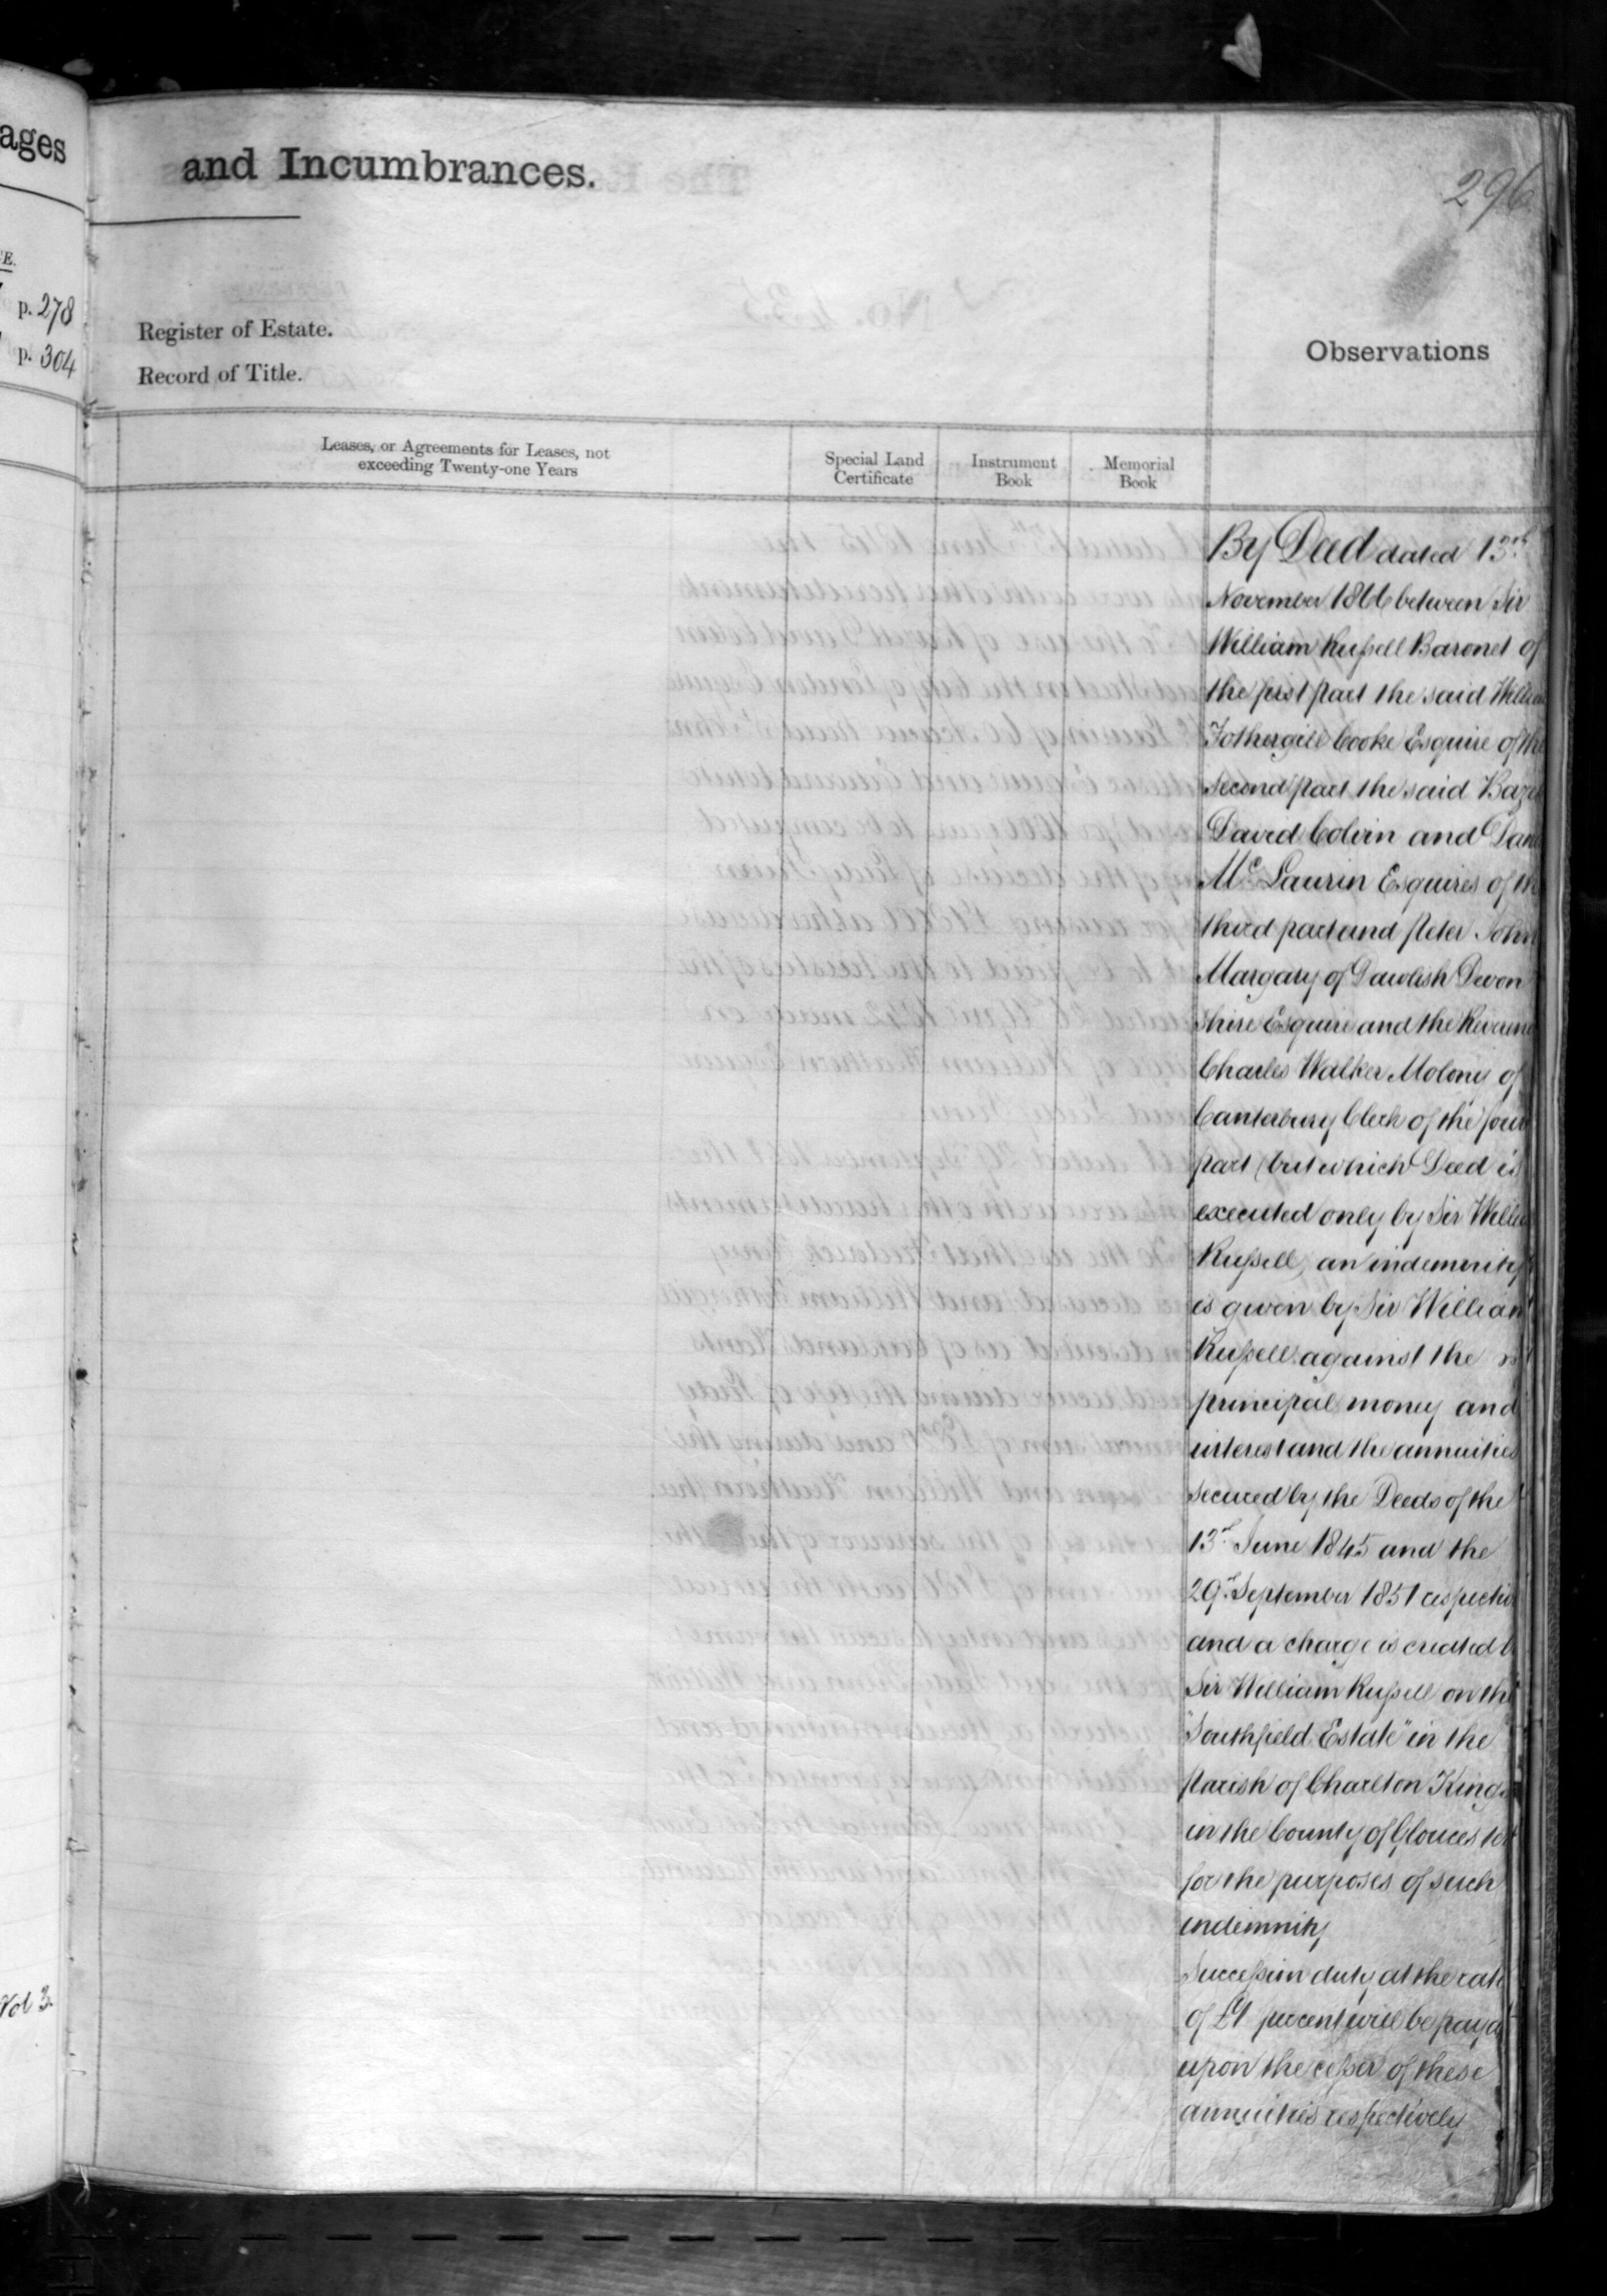 ages
and Incumbrances.
296
E.
p. 278
p. 304
Register of Estate.
Record of Title.
Observations
Leases, or Agreements for Leases, not
exceeding Twenty-one Years
Special Land
Certificate
Instrument
Book
Memorial
Book
By Deed dated 13th
November 1866 between Sir
William Russell Baronet of
the first part the said Willia
Fothergill Cooke Esquire of the
second part the said Baze
David Colvin and Dan
Mc Laurin Esquires of th
third part and Peter John
Margary of Dawlish Devon
shire Esquire and the Reveren
Charles Walker Molony of
Canterbury Clerk of the four
part (but which Deed is
executed only by Sir Willia
Russell) an indemnity
is given by Sir William
Russell against the
principal money and
interest and the annuities
secured by the Deeds of the
13th June 1845 and the
29th September 1851 respectiv
and a charge is created b
Sir William Russell on the
"Southfield Estate" in the
Parish of Charlton Kings
in the County of Gloucester
for the purposes of such
indemnity
Succession duty at the rate
of £1 percent will be paya
upon the cesser of these
annuities respectively
Vol 3.